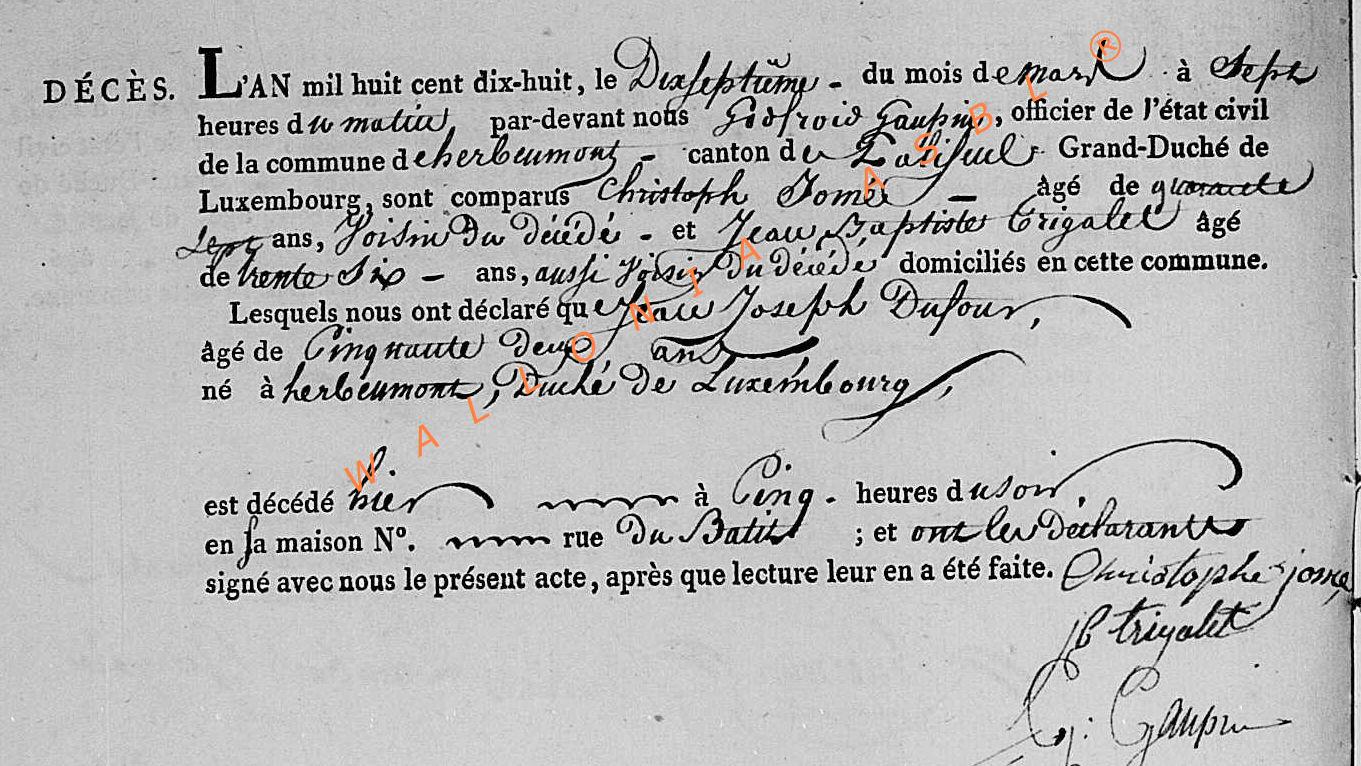 DÉCÈS. L'AN mil huit cent dix-huit, le Dixseptiême - du mois de mars à Sept
heures du matin, par-devant nous Godfroid Gaupin, officier de l'état civil
de la commune d'herbeumont - canton de Paliseul - Grand-Duché de
Luxembourg, sont comparus Christoph Jomé - âgé de quarante
Sept ans, Voisin Du décédé - et Jean Baptiste Trigalet âgé
de trente Six - ans, aussi Voisin Du décédé domiciliés en cette commune.
Lesquels nous ont déclaré que Jean Joseph Dufour,
âgé de Cinquante deux ans
né à herbeumont, Duché de Luxembourg,
est décédé hier à Cinq - heures du soir,
en sa maison N°. rue Du Batis ; et ont les Déclarants
signé avec nous le présent acte, après que lecture leur en a été faite. Christophe jomé,
jb trigalet
G: Gaupin
WALLONIA ASBL ®